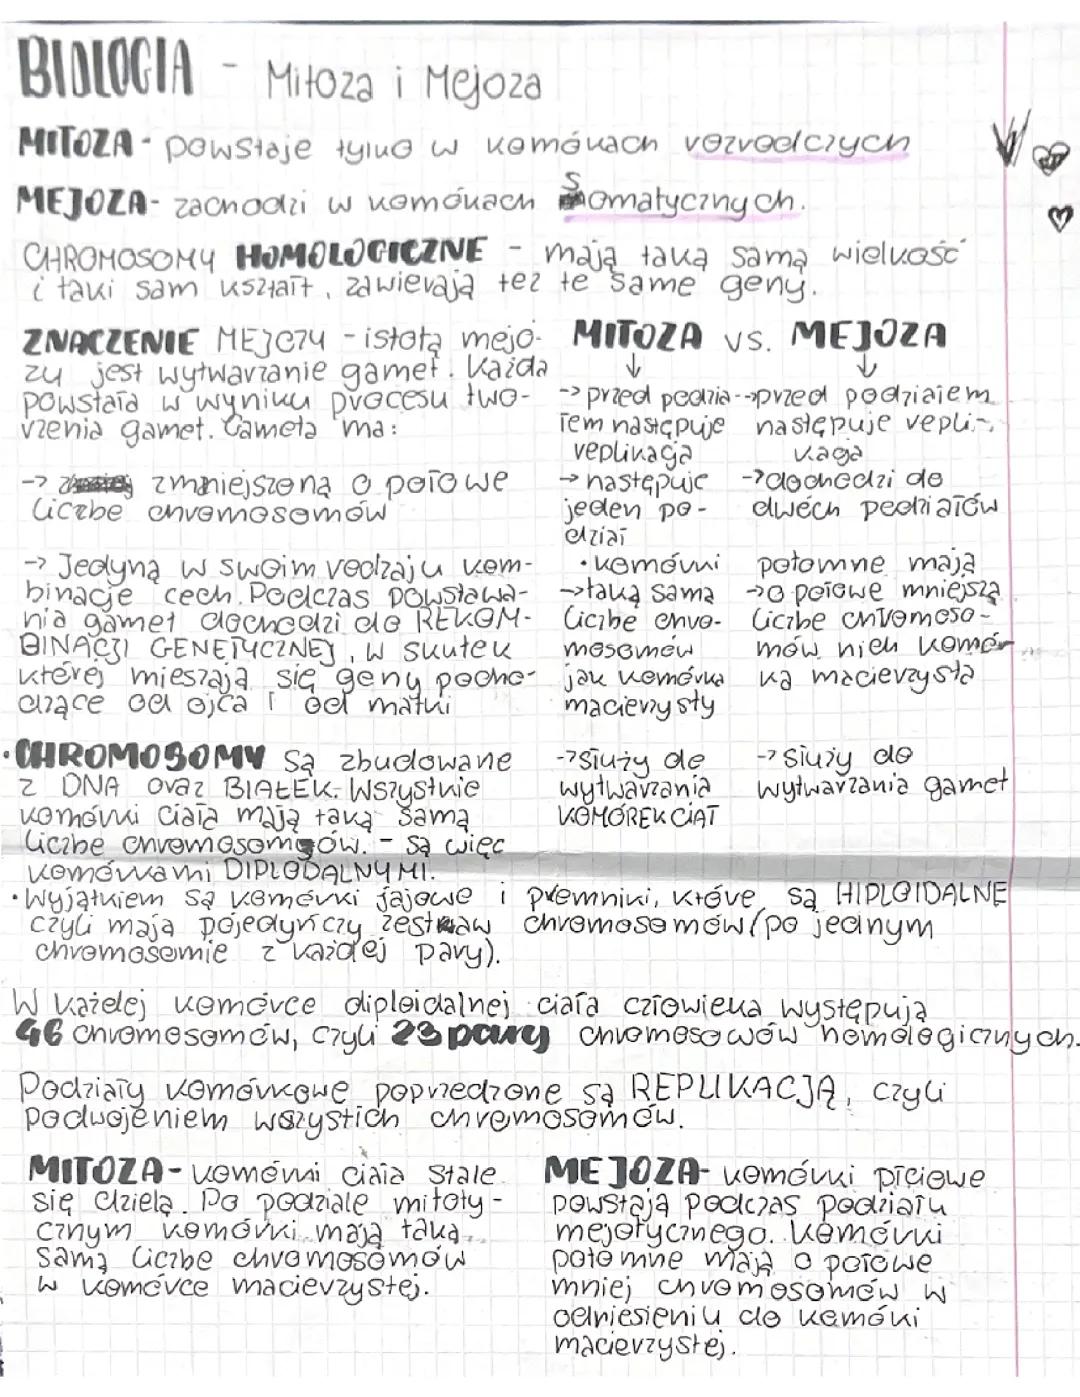 BIOLOGIA - Mitoza i Mejoza
MITOZA - powstaje tylko w komókach rozrodczych
MEJOZA - zachodzi w komókach somatycznych.
CHROMOSOMY HOMOLOGICZNE - mają taką samą wielkość
i taki sam kształt, zawierają też te same geny.
ZNACZENIE MEJOZY - istotą mejo-
zy jest wytwarzanie gamet. Każda
powstała w wyniku procesu two-
rzenia gamet. Gameta ma:
-> zmniejszoną o połowe
liczbe chromosomów
-> Jedyną w swoim rodzaju kom-
binacje cech. Podczas powstawa-
nia gamet dochodzi do REKOM-
BINACJI GENETYCZNEJ, w skutek
której mieszają się geny pocho-
dzące od ojca i od matki
MITOZA vs. MEJOZA
-> przed podzia-
łem następuje
replikacja
-> następuje
jeden po-
dział
-> przed podziałem
następuje repli-
kacja
-> dochodzi do
dwóch podziałów
• komórki potomne mają
-> taką sama
liczbe chro-
mosomów
jak komórka
macierzysty
-> o połowe mniejszą
liczbe chromoso-
mów nich komór
ka macierzysta
-> służy do
wytwarzania
KOMÓREK CIAŁ
-> służy do
wytwarzania gamet
• CHROMOSOMY są zbudowane
z DNA oraz BIAŁEK. Wszystkie
komórki ciała mają taką samą
liczbe chromosomów. - są więc
komórkami DIPLODALNYMI.
• Wyjątkiem są komórki jajowe i plemniki, które są HIPLOIDALNE
czyli mają pojedyńczy zestaw chromosomów (po jednym
chromosomie z każdej pary).
W każdej komórce diploidalnej ciała człowieka występują
46 chromosomów, czyli 23 pary chromosowów homologicznych.
Podziały komórkowe poprzedzone są REPLIKACJĄ, czyli
podwojeniem wszystich chromosomów.
MITOZA - komórki ciała stale
się dzielą. Po podziale mitoty-
cznym komórki mają taką
samą liczbe chromosomów
w komórce macierzystej.
MEJOZA - komórki płciowe
powstają podczas podziału
mejotycznego. Komórki
potomne mają o połowe
mniej chromosomów w
odniesieniu do komóki
macierzystej.